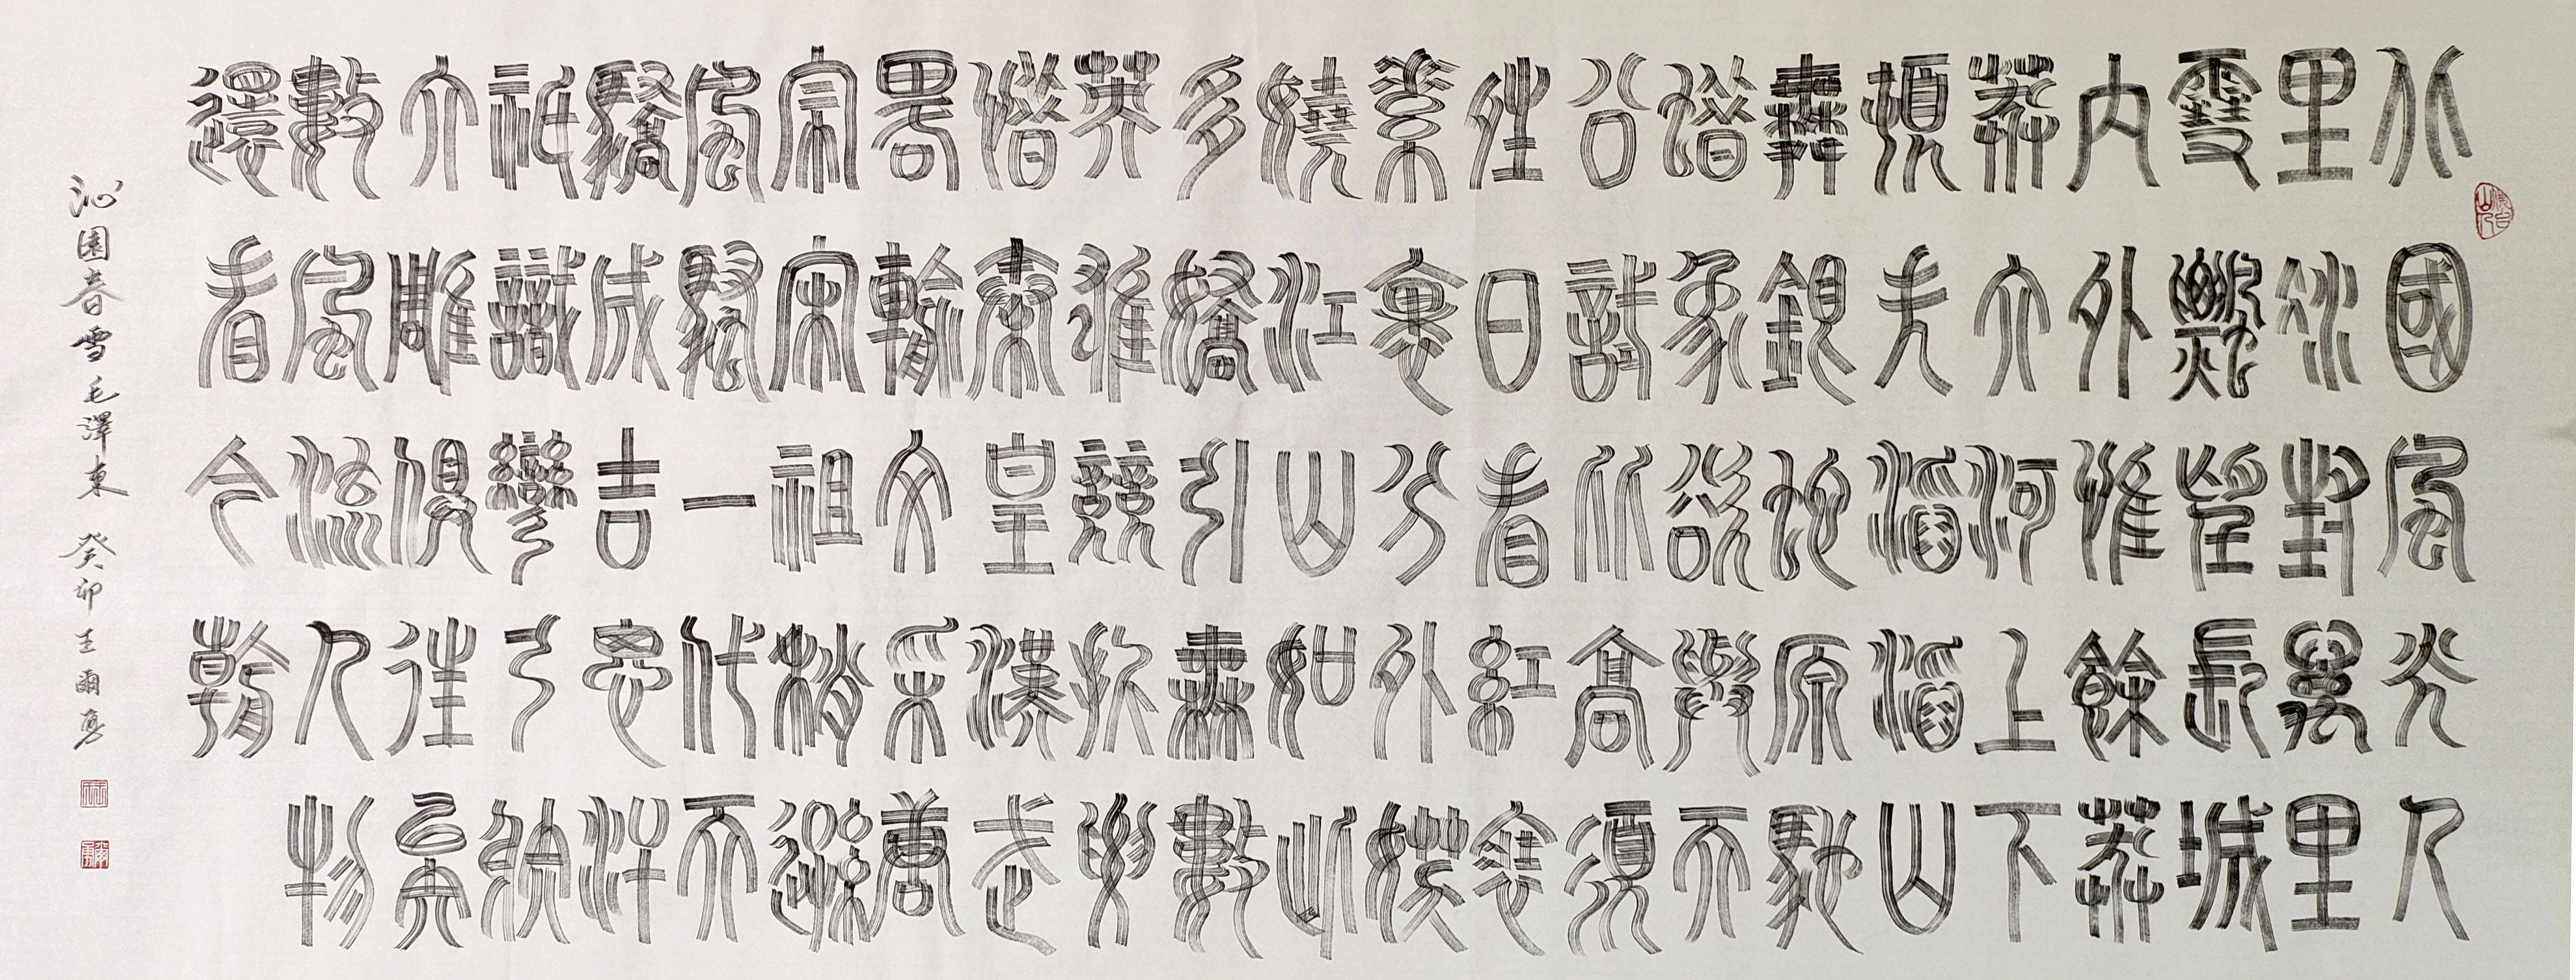 北國風光千
里冰封萬里
雪飄望長城
內外惟餘莽
莽大河上下
頓失滔滔山
舞銀蛇原馳
蠟象欲與天
公試比高須
晴日看紅裝
素裹分外妖
嬈江山如此
多嬌引無數
英雄競折腰
惜秦皇漢武
略輸文采唐
宗宋祖稍遜
風騷一代天
驕成吉思汗
祗識彎弓射
大雕俱往矣
數風流人物
還看今朝
沁園春雪 毛澤東 癸卯 王爾勇